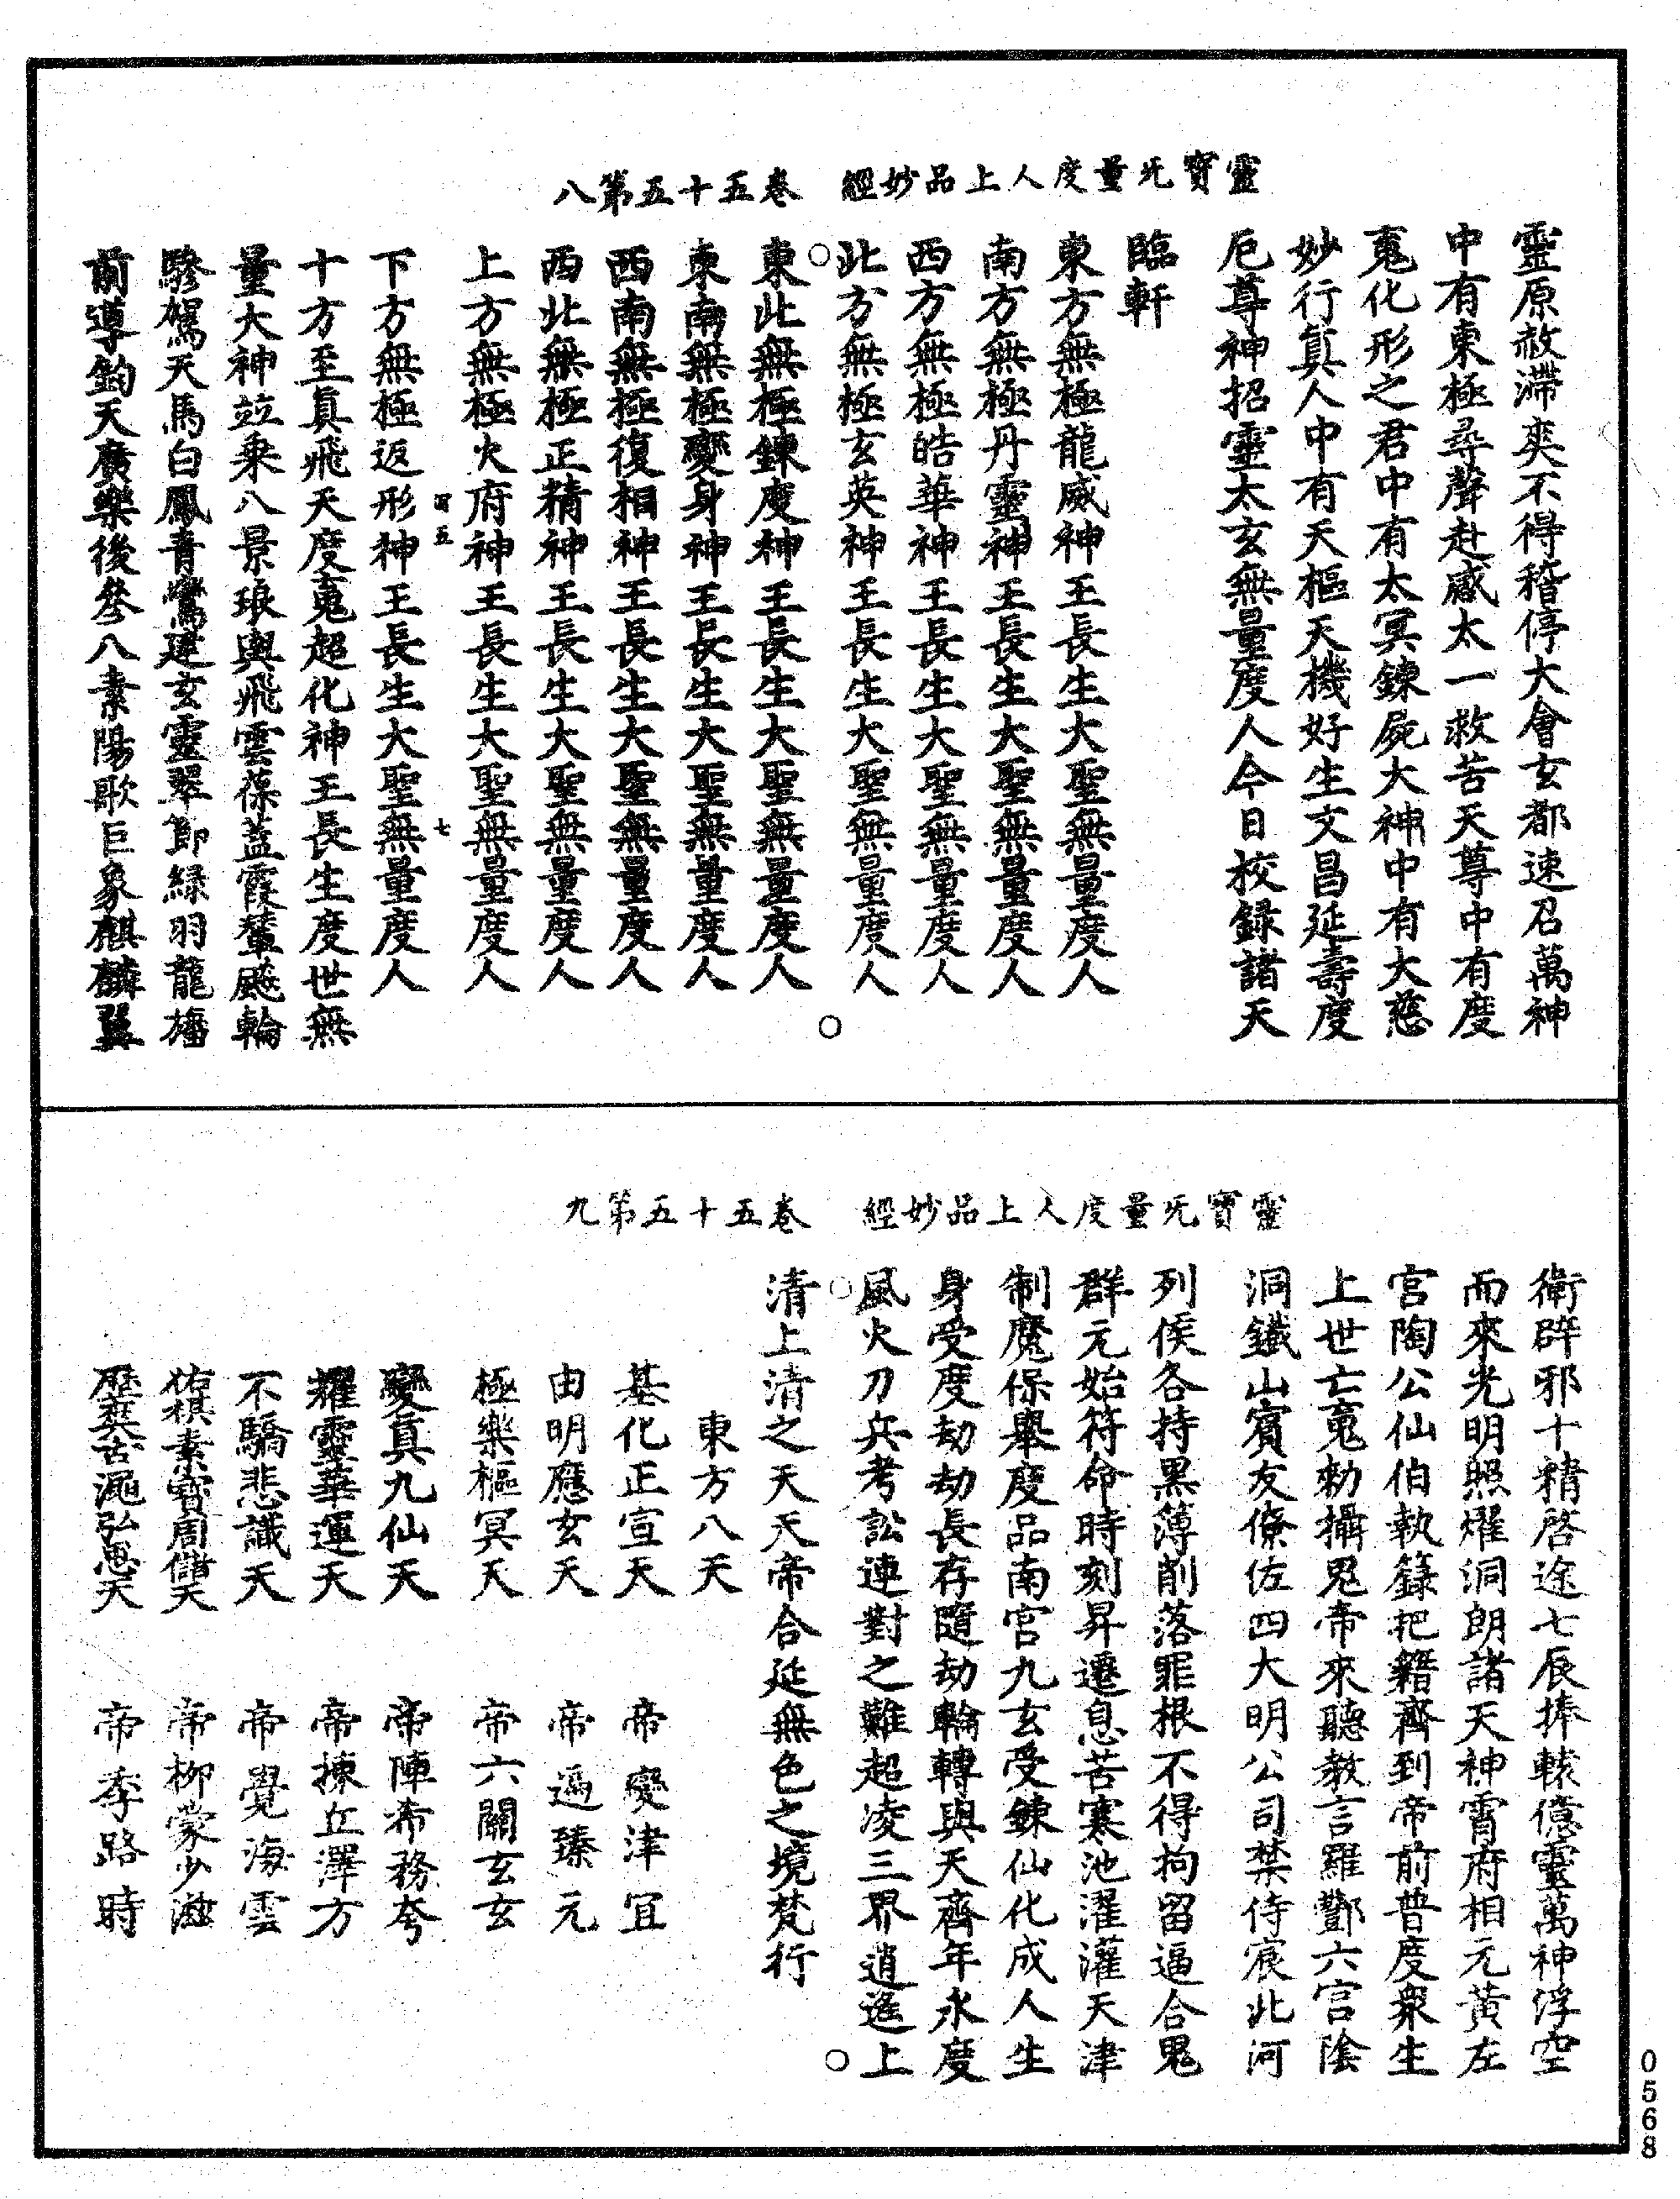 靈寶旡量度人上品妙經　卷五十五第八
靈原赦滯奕不得稽停大會玄都速召萬神
中有東極尋聲赴感太一救苦天尊中有度
䰟化形之君中有太冥鍊屍大神中有大慈
妙行真人中有天樞天機好生文昌延壽度
厄尊神招靈太玄無量度人今日校錄諸天
臨軒
東方無極龍威神王長生大聖無量度人
南方無極丹靈神王長生大聖無量度人
西方無極皓華神王長生大聖無量度人
北方無極玄英神王長生大聖無量度人
東北無極鍊度神王長生大聖無量度人
東南無極變身神王長生大聖無量度人
西南無極復相神王長生大聖無量度人
西北無極正精神王長生大聖無量度人
上方無極火府神王長生大聖無量度人
五　七
下方無極返形神王長生大聖無量度人
十方至真飛天度䰟超化神王長生度世無
量大神竝乘八景琅輿飛雲葆蓋霞輦飈輪
驂駕天馬白鳳青鸞建玄靈翠節綠羽龍旛
前導鈞天廣樂後參八素陽歌巨象麒麟翼
靈寶旡量度人上品妙經　卷五十五第九
衛辟邪十精啓途七辰捧轅億靈萬神浮空
而來光明照燿洞朗諸天神霄府相元黃左
宮陶公仙伯執籙把籍齊到帝前普度衆生
上世亡䰟勑攝鬼帝來聽教言羅酆六宮陰
洞鐵山賓友僚佐四大明公司禁侍宸北河
列侯各持黑簿削落罪根不得拘留逼合鬼
群元始符命時刻昇遷息苦寒池濯灌天津
制魔保舉度品南宮九玄受鍊仙化成人生
身受度劫劫長存隨劫輪轉與天齊年永度
風火刀兵考訟連對之難超凌三界逍遙上
清上清之天天帝合延無色之境梵行
東方八天
基化正宣天　帝變津冝
由明應玄天　帝逼臻元
極樂樞冥天　帝六關玄玄
變真九仙天　帝陣希務夸
耀靈華運天　帝揀丘澤方
不驕悲識天　帝覺海雲
祐棋素寶周儲天　帝柳蒙少滋
歷英古澠弘惠天　帝季路時
0568